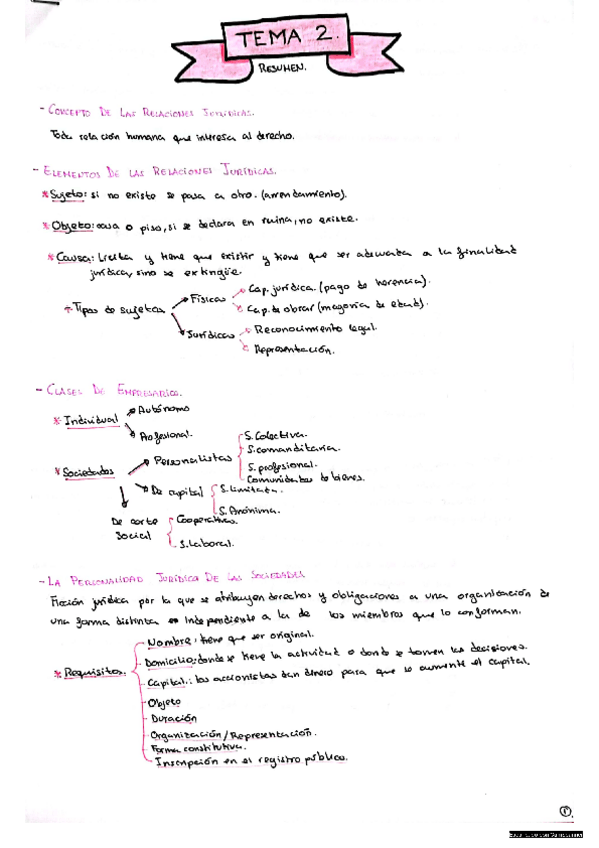 TEMA 2.
RESUMEN.
- CONCEPTO DE LAS RELACIONES JURÍDICAS.
Toda relación humana que interesa al derecho.
- ELEMENTOS DE LAS RELACIONES JURÍDICAS.
* Sujeto: si no existe se pasa a otro. (arrendamiento).
* Objeto: casa o piso, si se declara en ruina, no existe.
* Causa: Lícita y tiene que existir y tiene que ser adecuada a la finalidad
jurídica, sino se extingüe.
* Tipos de sujetos
Físicas
Cap. jurídica. (pago de herencia).
Cap. de obrar (mayoría de edad).
Jurídicas
Reconocimiento legal.
Representación.
- CLASES DE EMPRESARIOS.
* Individual
Autónomo
Profesional.
* Sociedades
Personalistas
S. Colectiva.
S. comanditaria.
S. profesional.
Comunidades de bienes.
De capital
S. Limitada.
S. Anónima.
De corte
Social
Cooperativas.
S. Laboral.
- LA PERSONALIDAD JURÍDICA DE LAS SOCIEDADES
Ficción jurídica por la que se atribuyen derechos y obligaciones a una organización de
una forma distinta e independiente a la de los miembros que lo conforman.
* Requisitos.
Nombre: tiene que ser original.
Domicilio: donde se lleve la actividad o donde se tomen las decisiones.
Capital.: los accionistas dan dinero para que se aumente el capital.
Objeto
Duración
Organización / Representación.
Forma constitutiva.
Inscripción en el registro público.
1.